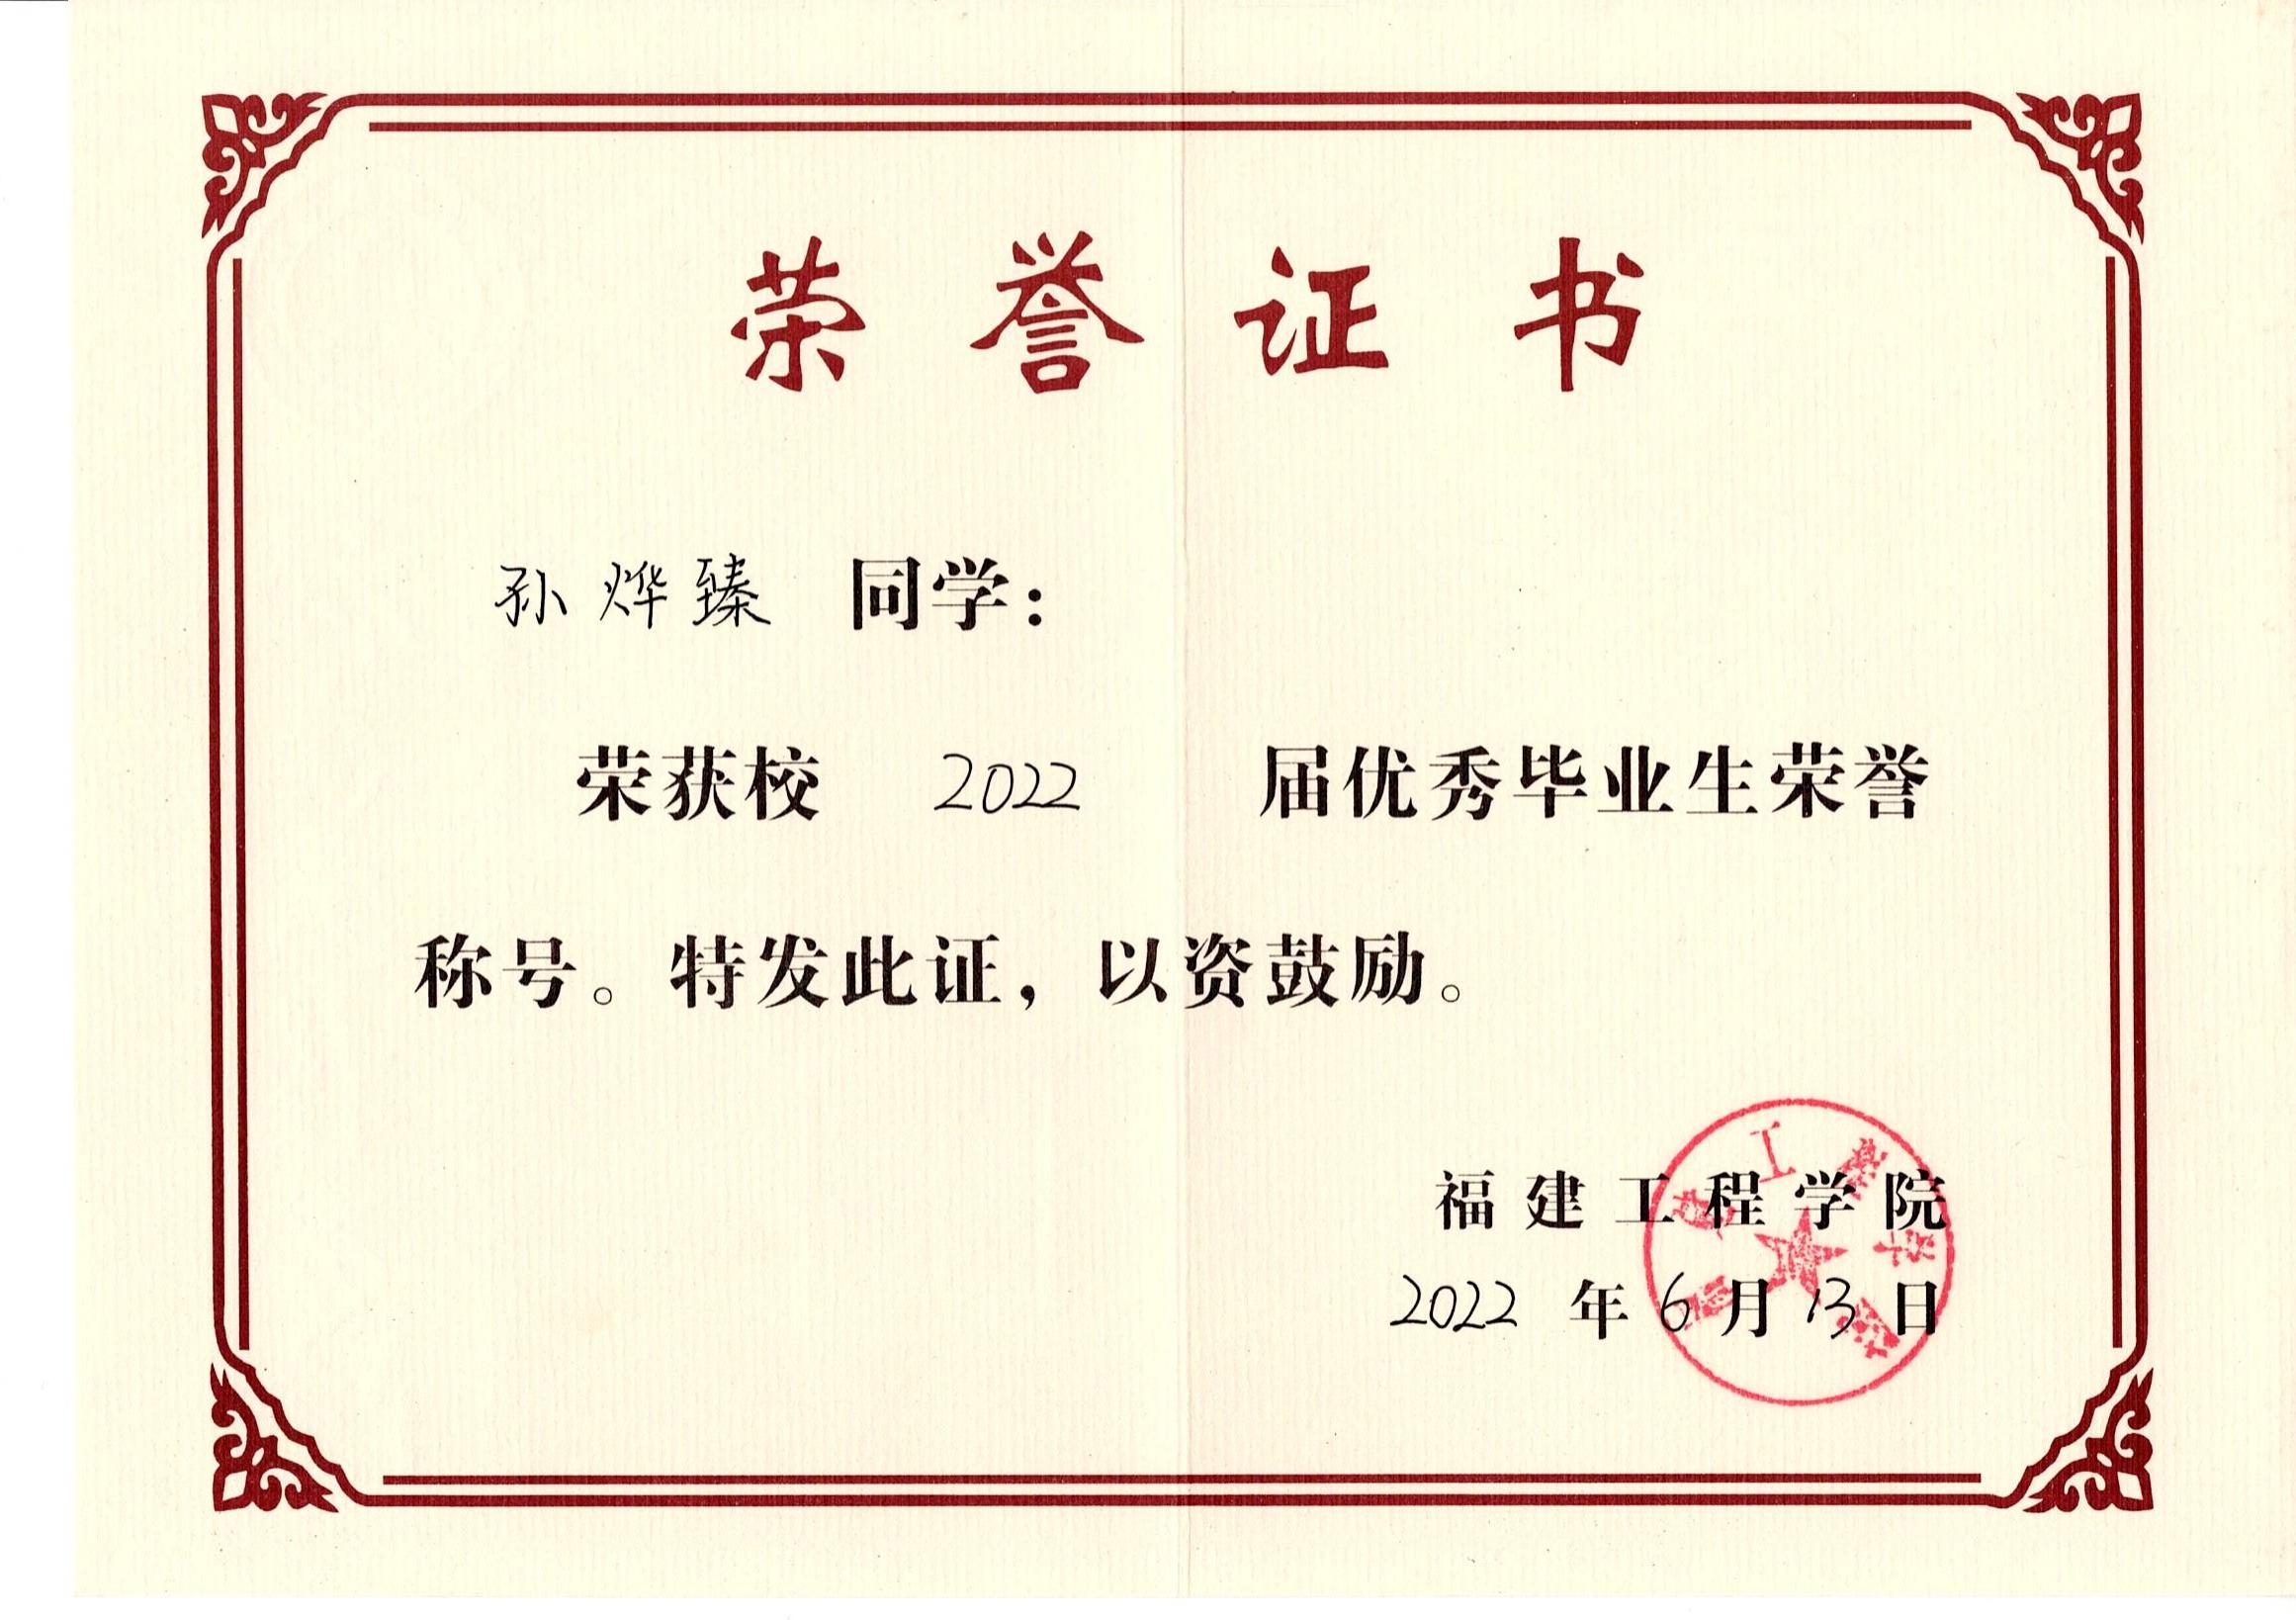 荣誉证书
孙烨臻 同学：
荣获校 2022 届优秀毕业生荣誉
称号。特发此证，以资鼓励。
福建工程学院
2022 年 6 月 13 日
福建工程学院